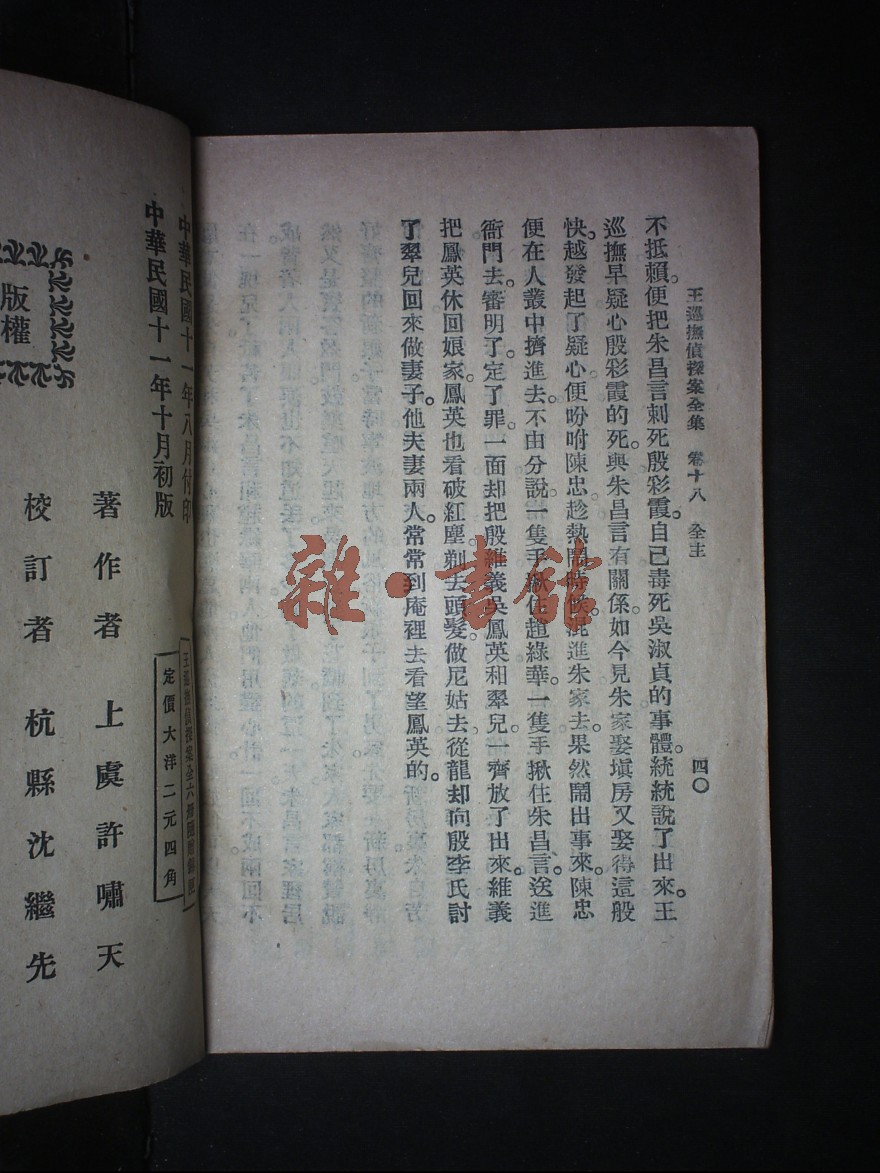 王巡撫偵探案全集 卷十八 全主 四〇
不抵賴。便把朱昌言刺死殷彩霞。自己毒死吳淑貞的事體。統統說了出來。王
巡撫早疑心殷彩霞的死。與朱昌言有關係。如今見朱家娶塡房又娶得這般
快。越發起了疑心。便吩咐陳忠。趁熱鬧時候。混進朱家去。果然鬧出事來。陳忠
便在人叢中擠進去。不由分說。一隻手揪住趙綠華。一隻手揪住朱昌言。送進
衙門去。審明了。定了罪。一面却把殷維義吳鳳英和翠兒。一齊放了出來。維義
把鳳英休回娘家。鳳英也看破紅塵。剃去頭髮。做尼姑去。從龍却向殷李氏討
了翠兒回來做妻子。他夫妻兩人。常常到庵裡去看望鳳英的。
中華民國十一年八月付印
中華民國十一年十月初版
版權
著作者 上虞許嘯天
校訂者 杭縣沈繼先
定價大洋二元四角
雜·書館